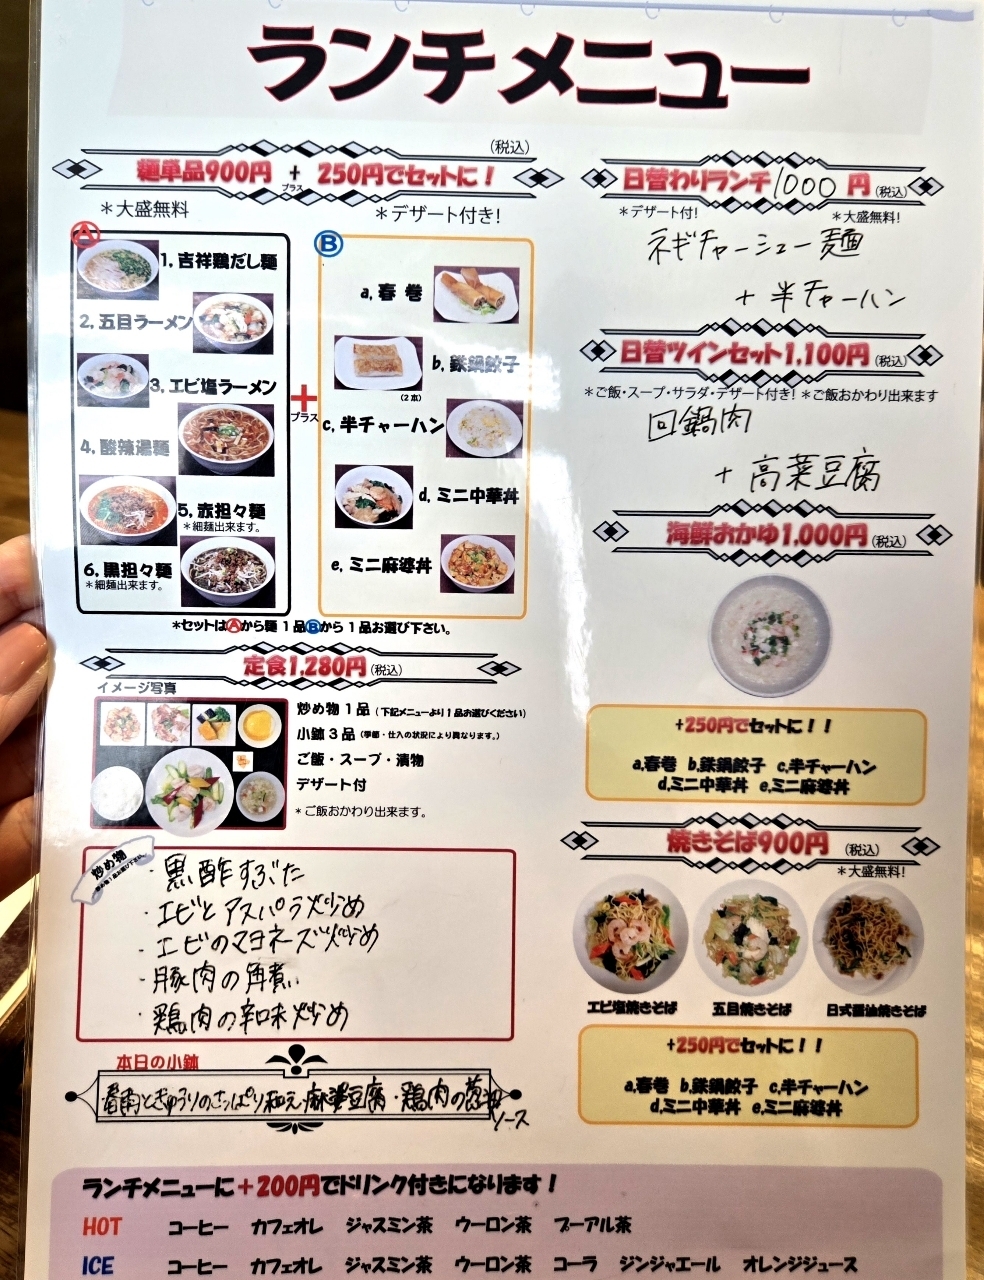 ランチメニュー
(税込)
麺単品900円 + 250円でセットに!
プラス
*大盛無料
*デザート付き!
A
1. 吉祥鶏だし麺
2. 五目ラーメン
3. エビ塩ラーメン
4. 酸辣湯麺
5. 赤担々麺
*細麺出来ます。
6. 黒担々麺
*細麺出来ます。
+
プラス
B
a. 春巻
b. 鉄鍋餃子
(2本)
c. 半チャーハン
d. ミニ中華丼
e. ミニ麻婆丼
*セットはAから麺1品Bから1品お選び下さい。
定食1,280円(税込)
イメージ写真
炒め物1品(下記メニューより1品お選びください)
小鉢3品(季節・仕入の状況により異なります。)
ご飯・スープ・漬物
デザート付
*ご飯おかわり出来ます。
炒め物
・黒酢すぶた
・エビとアスパラ炒め
・エビのマヨネーズ炒め
・豚肉の角煮
・鶏肉の辛味炒め
本日の小鉢
きゅうりのさっぱり和え・麻婆豆腐・鶏肉の葱
ソース
日替わりランチ1000円(税込)
*デザート付! *大盛無料!
ネギチャーシュー麺
+半チャーハン
日替ツインセット1,100円(税込)
*ご飯・スープ・サラダ・デザート付き! *ご飯おかわり出来ます
回鍋肉
+高菜豆腐
海鮮おかゆ1,000円(税込)
+250円でセットに!!
a.春巻 b.鉄鍋餃子 c.半チャーハン
d.ミニ中華丼 e.ミニ麻婆丼
焼きそば900円(税込)
*大盛無料!
エビ塩焼きそば 五目焼きそば 日式醤油焼きそば
+250円でセットに!!
a.春巻 b.鉄鍋餃子 c.半チャーハン
d.ミニ中華丼 e.ミニ麻婆丼
ランチメニューに+200円でドリンク付きになります!
HOT コーヒー カフェオレ ジャスミン茶 ウーロン茶 プーアル茶
ICE コーヒー カフェオレ ジャスミン茶 ウーロン茶 コーラ ジンジャエール オレンジジュース